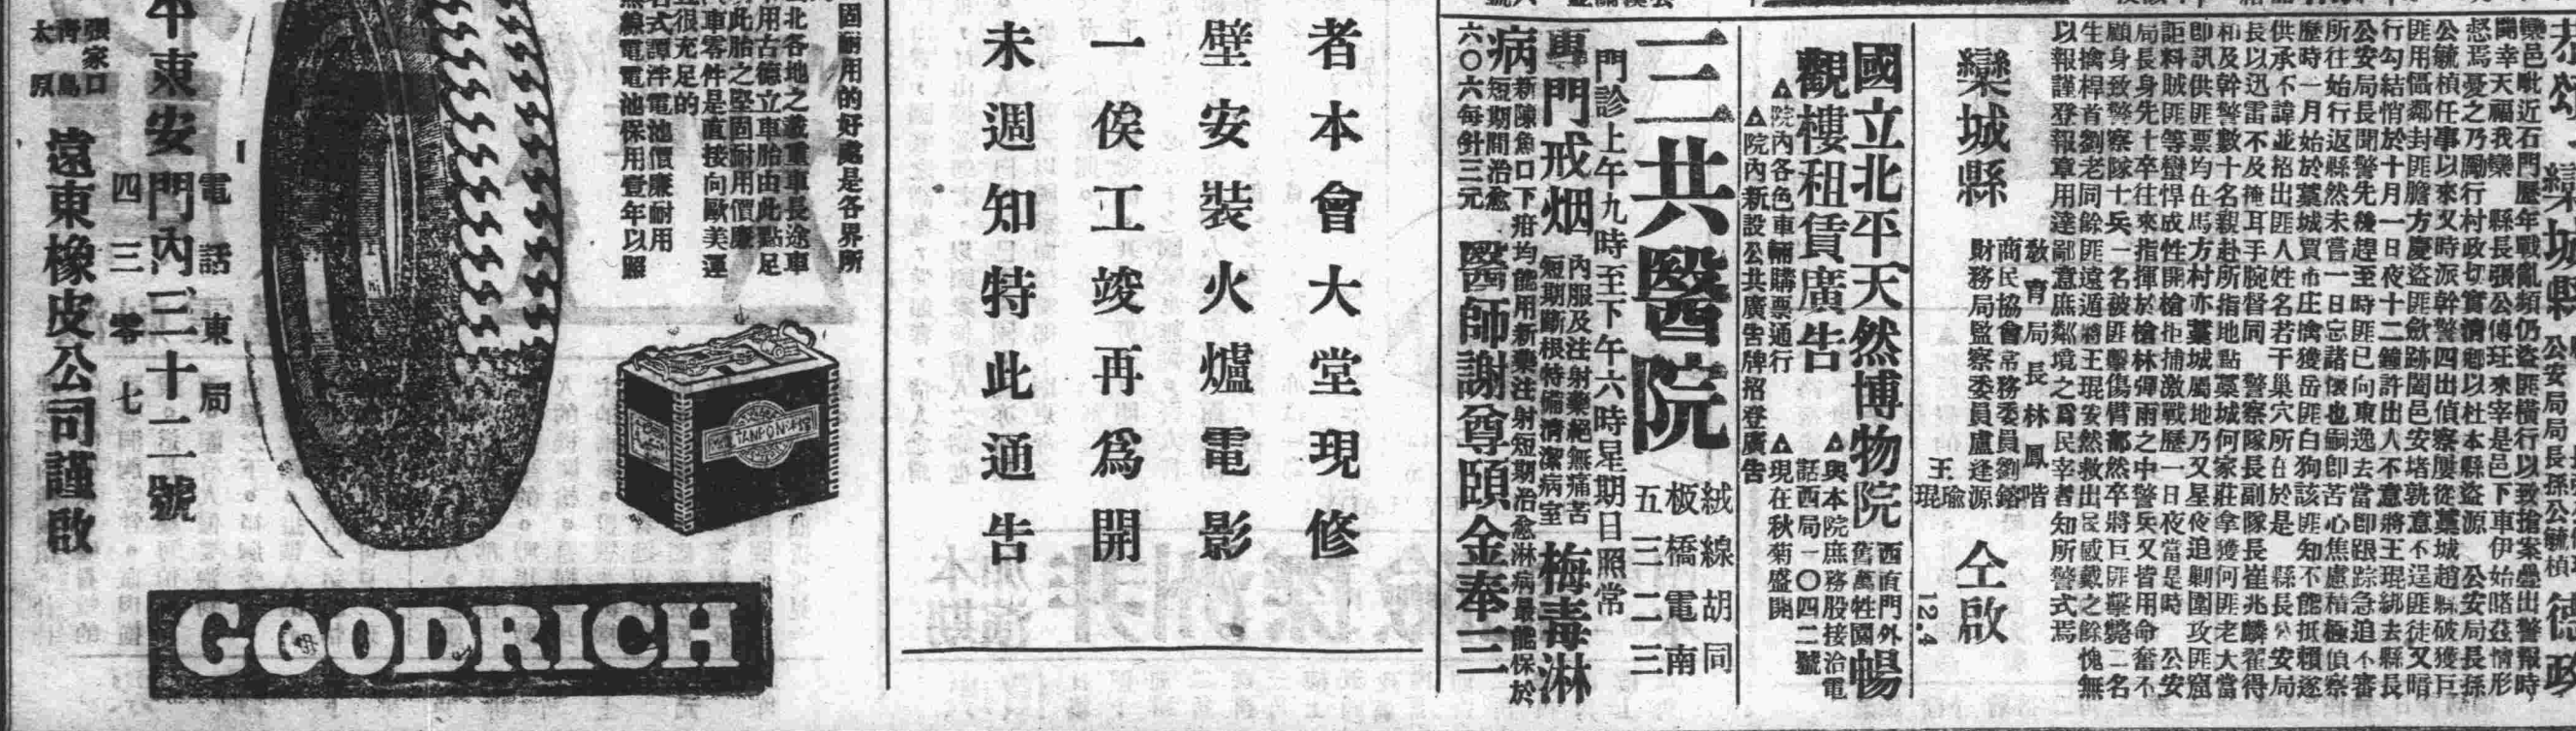 欒城縣
公安局局長孫公毓楨
德政
欒邑毗近石門歷年戰亂頻仍盜匪橫行以致搶案疊出警報時
聞幸天福我欒　縣長張公傳玨來宰是邑下車伊始睹茲情形
怒焉憂之乃勵行村政切實清鄉以杜本縣盜源　公安局長孫
公毓楨任事以來又時派幹警四出偵察屢從藁城趙縣破獲巨
匪用懾鄰封匪膽方慶盜匪歛跡闔邑安堵孰意不逞匪徒又暗
行勾結悄於十月一日夜十二鐘許出人不意將王琨綁去縣長
公安局長聞警先後趕至時匪已向東逸去當即跟踪急追不審
所往始行返縣然未嘗一日忘諸懷也嗣即苦心焦慮積極偵察
歷時一月始於藁城賈市庄擒獲岳匪白狗該匪知不能抵賴遂
供承不諱並招出匪人姓名若干巢穴所在於是　縣長公安局
長以迅雷不及掩耳手腕督同　警察隊長副隊長崔兆麟翟得
和及幹警數十名親赴所指地點藁城何家莊拿獲何匪老大當
即訊供匪票均在馬方村亦藁城屬地乃又星夜追剿圍攻匪窟
詎料賊匪等蠻悍成性開槍拒捕激戰歷一日夜當是時　公安
局長身先士卒往來指揮於槍林彈雨之中警兵又皆用命奮不
顧身致警察隊士兵一名被匪擊傷臂部然卒將巨匪擊斃二名
生擒桿首劉老同餘匪遠遁將王琨安然救出民感戴之餘愧無
以報謹登報章用達鄙意庶鄰境之爲民宰者知所警式焉
欒城縣
教育局長林鳳喈
商民協會常務委員劉鎔
財務局監察委員盧逢源
王瑜
琨
仝啟
12.4
國立北平天然博物院暢
觀樓租賃廣告
西直門外
舊萬牲園
▲院內各色車輛購票通行
▲院內新設公共廣告牌招登廣告
▲與本院庶務股接洽電
話西局一〇四二號
▲現在秋菊盛開
三共醫院
絨線胡同
板橋電南
五三二三
門診上午九時至下午六時星期日照常
專門戒烟
內服及注射藥絕無痛苦
短期斷根特備清潔病室
梅毒淋
病
新陳魚口下疳均能用新藥注射短期治愈淋病最能保於
短期間治愈
六〇六每針三元
醫師謝尊頤金奉三
者本會大堂現修
壁安裝火爐電影
一俟工竣再爲開
未週知特此通告
固耐用的好處是各界所
北各地之載重車長途車
用古德立車胎由此點足
此胎之堅固耐用價廉
車零件是直接向歐美運
很充足的
式譚泮電池價廉耐用
無線電電池保用壹年以照
TANPON
電話東局
四三零七
東安門內三十二號
張家口
青島
太原
遠東橡皮公司謹啟
GOODRICH